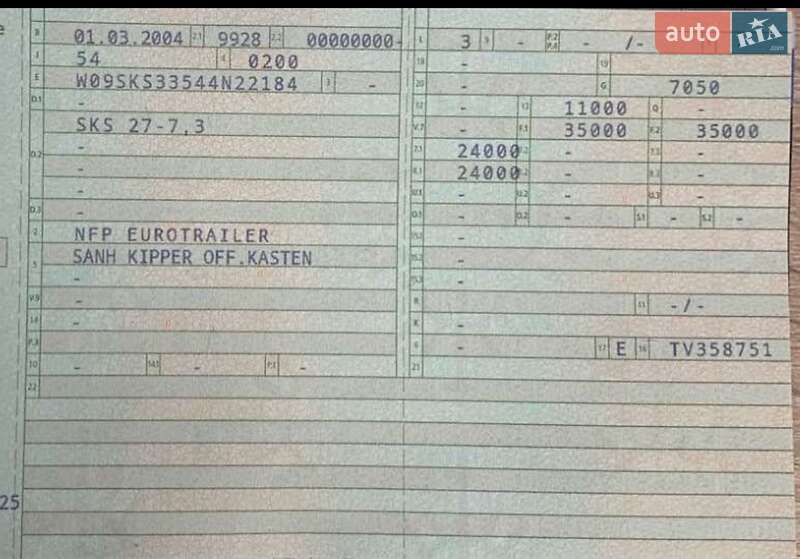 auto RIA .com
B 01.03.2004 2.1 9928 2.2 00000000-
J 54 4 0200
E W09SKS33544N22184 3 -
D.1 -
SKS 27-7,3
D.2 -
-
-
D.3 -
2 NFP EUROTRAILER
5 SANH KIPPER OFF.KASTEN
-
V.9 -
14 -
P.3 -
10 - 14.1 - P.1 -
22
L 3 9 - P.2 P.4 - /-
18 - 19
20 - G 7050
12 - 13 11000 Q -
V.7 - F.1 35000 F.2 35000
7.1 24000 7.2 - 7.3 -
8.1 24000 8.2 - 8.3 -
U.1 - U.2 - U.3 -
O.1 - O.2 - S.1 - S.2 -
15.1 -
15.2 -
15.3 -
R 11 -/-
K -
6 - 17 E 16 TV358751
21
25